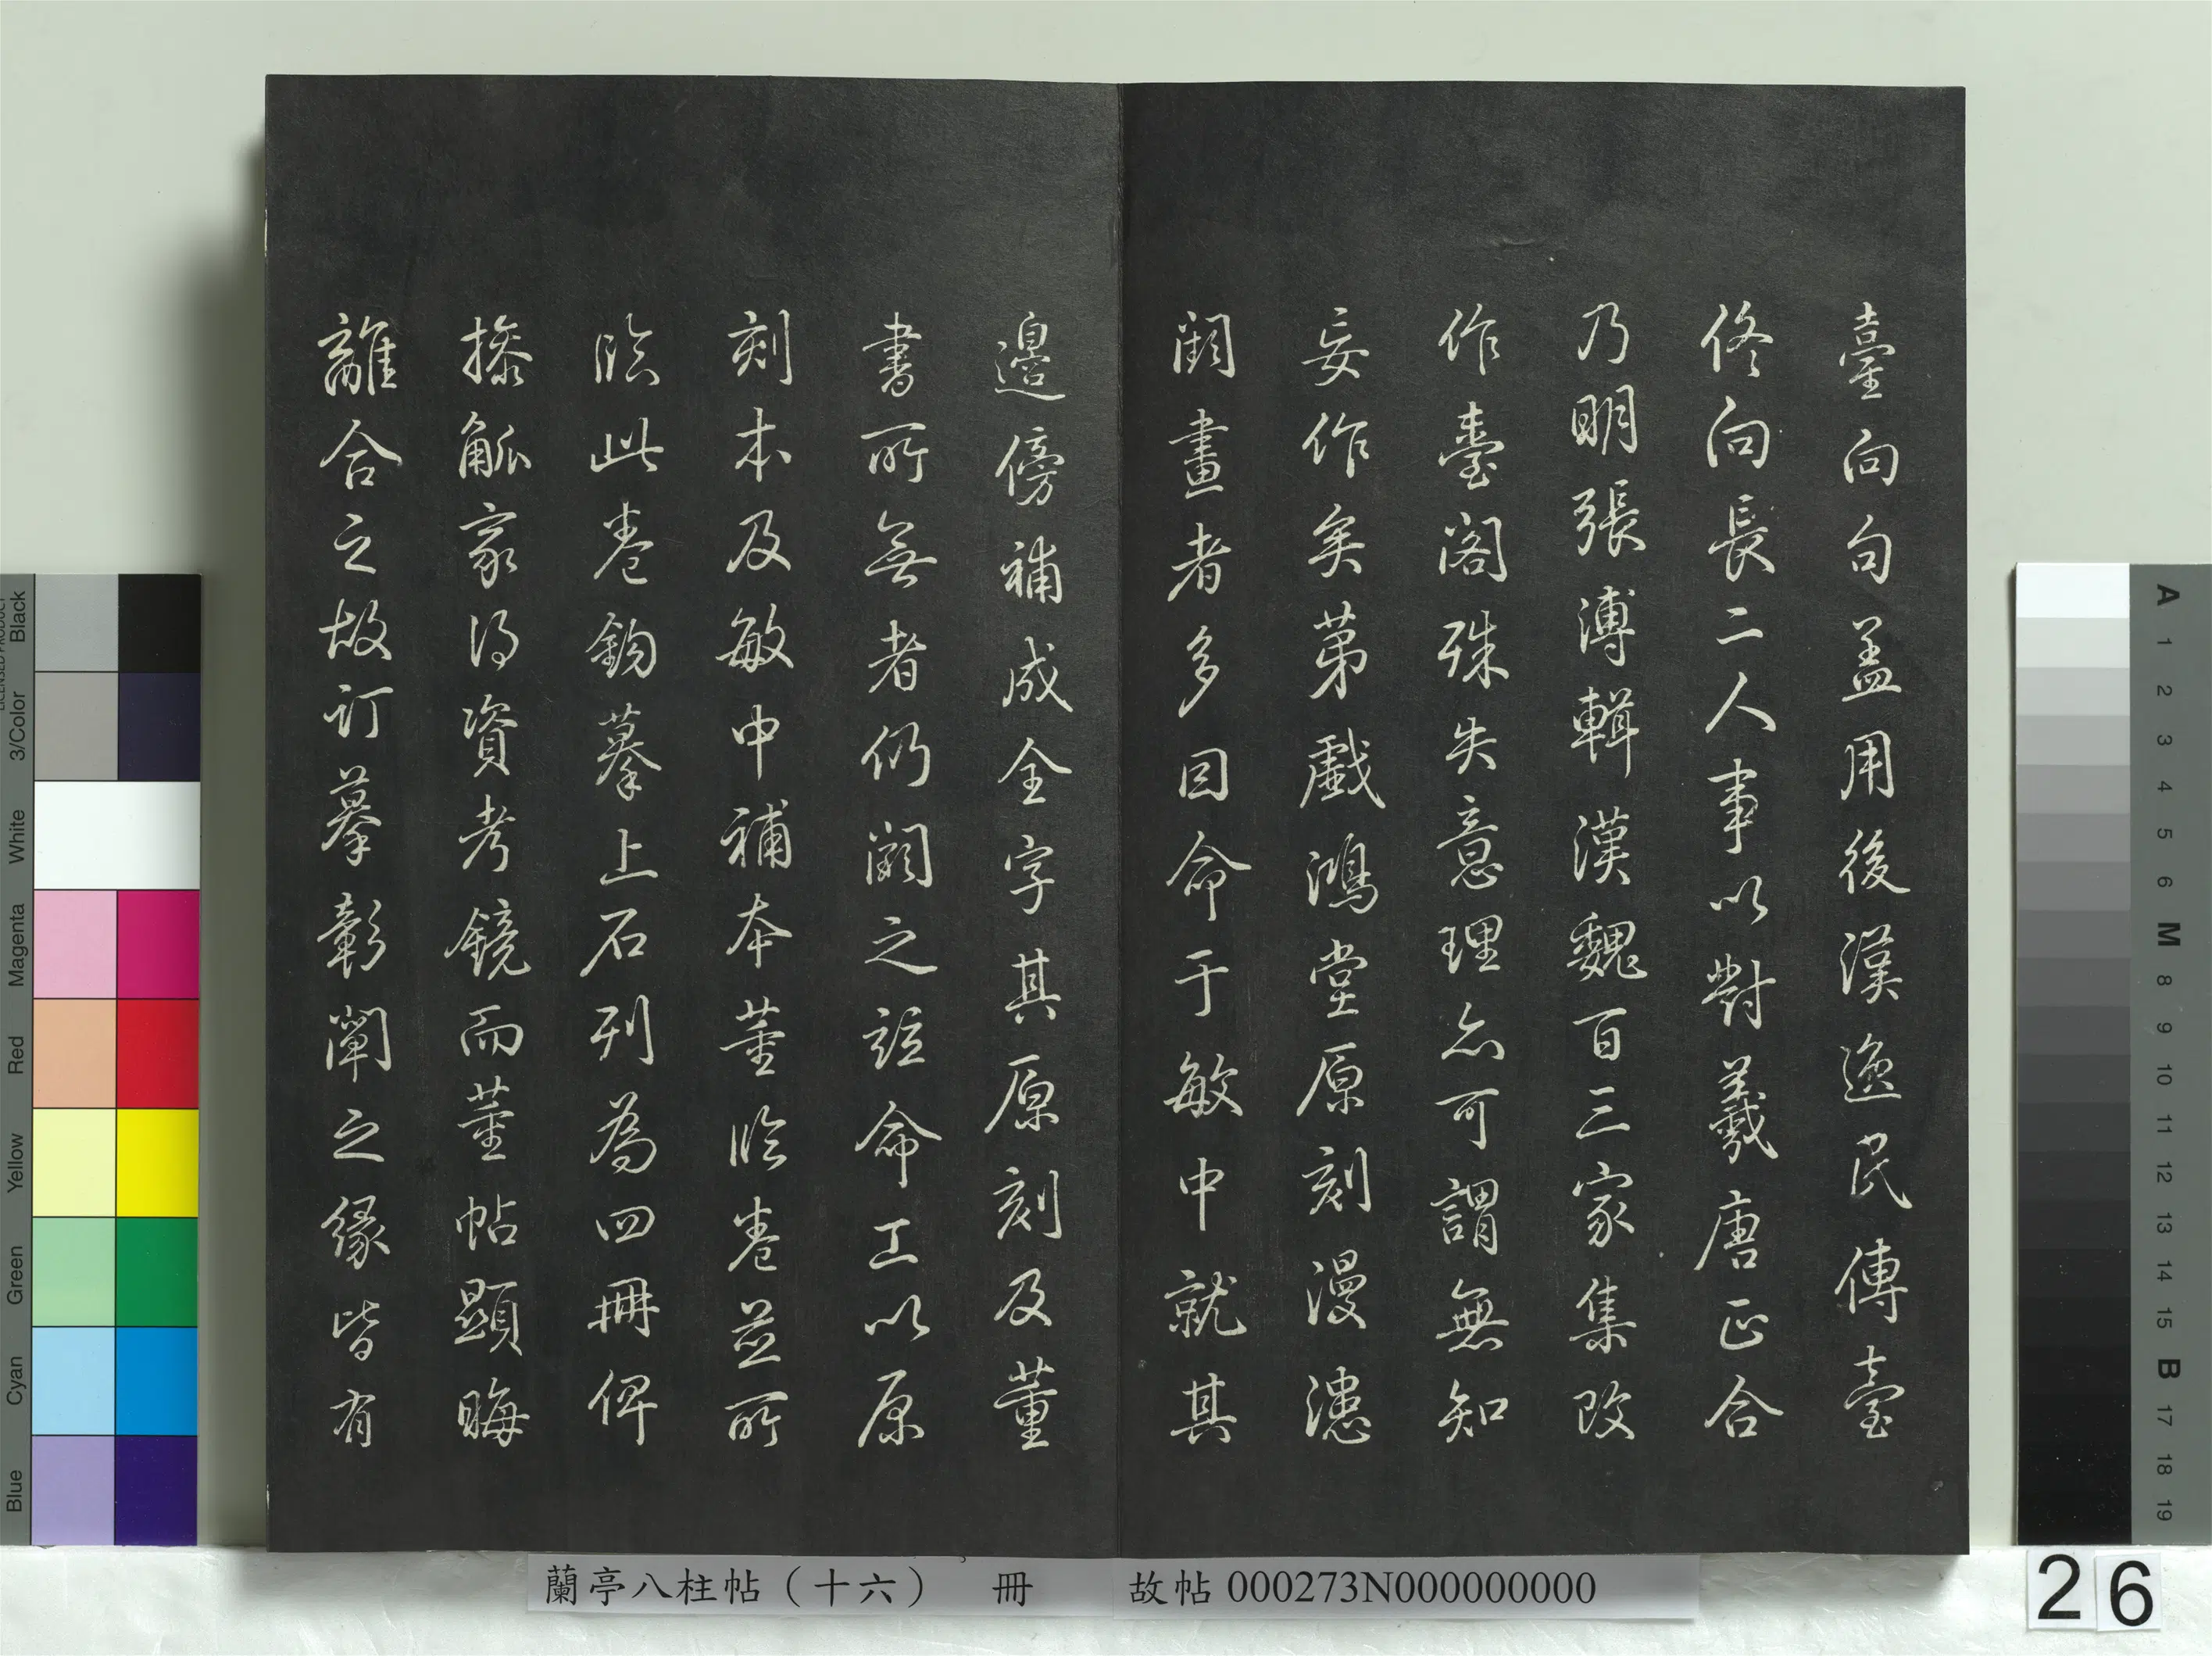 臺向句盖用後漢逸民傳臺
佟向長二人事以對羲唐正合
乃明張溥輯漢魏百三家集改
作臺閣殊失意理亦可謂無知
妄作矣第戲鴻堂原刻漫漶
闕畫者多因命于敏中就其
邊傍補成全字其原刻及董
書所無者仍闕之並命工以原
刻本及敏中補本董臨卷並所
臨此卷鉤摹上石列為四冊俾
操觚家得資考鏡而董帖顯晦
離合之故訂摹彰闡之緣皆有
蘭亭八柱帖（十六） 冊 故帖000273N000000000
26
Black
3/Color
White
Magenta
Red
Yellow
Green
Cyan
Blue
A
1
2
3
4
5
6
M
8
9
10
11
12
13
14
15
B
17
18
19